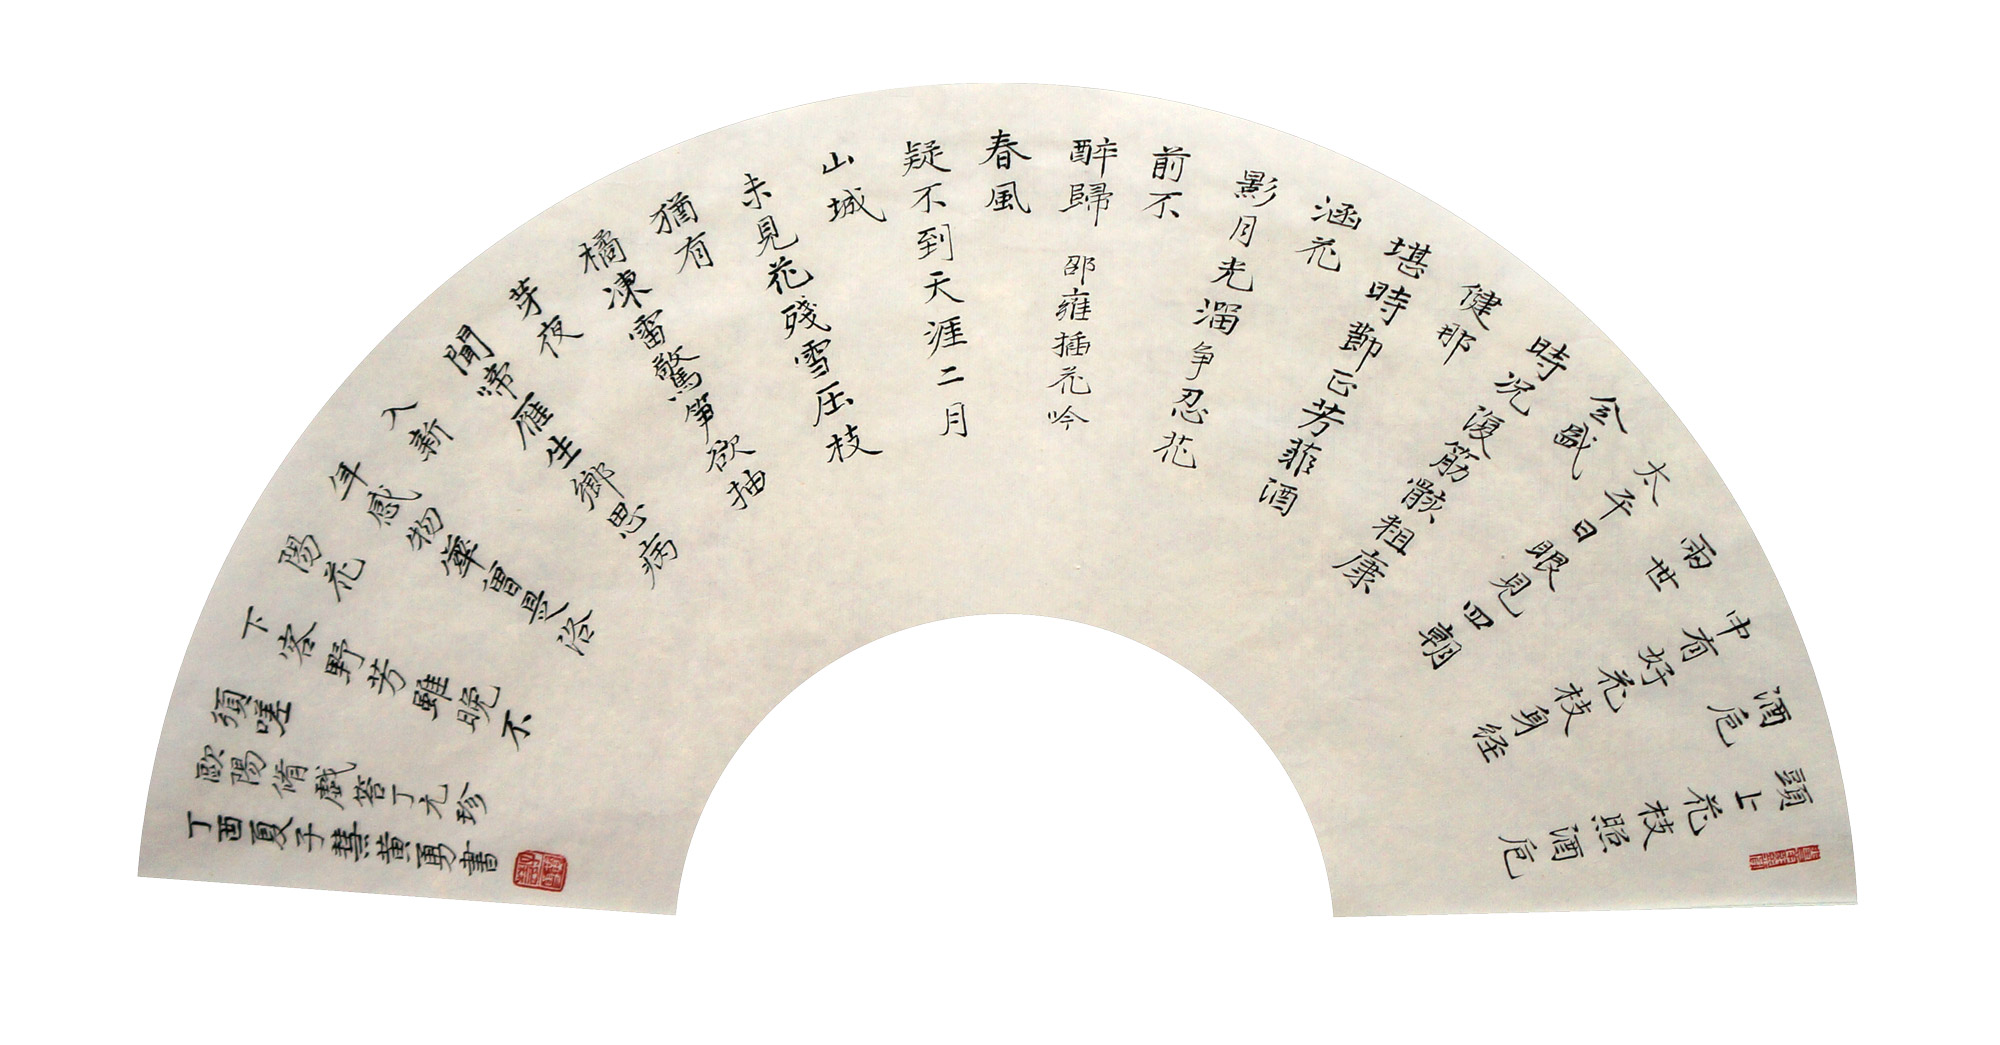 頭上花枝照酒卮
酒卮
中有好花枝身経
兩世
太平日眼見四朝
全盛
時况復筋骸粗康
健那
堪時節正芳菲酒
涵花
影月光溜争忍花
前不
醉歸 邵雍插花吟
春風
疑不到天涯二月
山城
未見花殘雪压枝
猶有
橘凍雷驚笋欲抽
芽夜
聞啼雁生鄉思病
入新
年感物華曾是洛
陽花
下客野芳雖晚不
須嗟
歐陽脩戲答丁元珍
丁酉夏子黄勇書